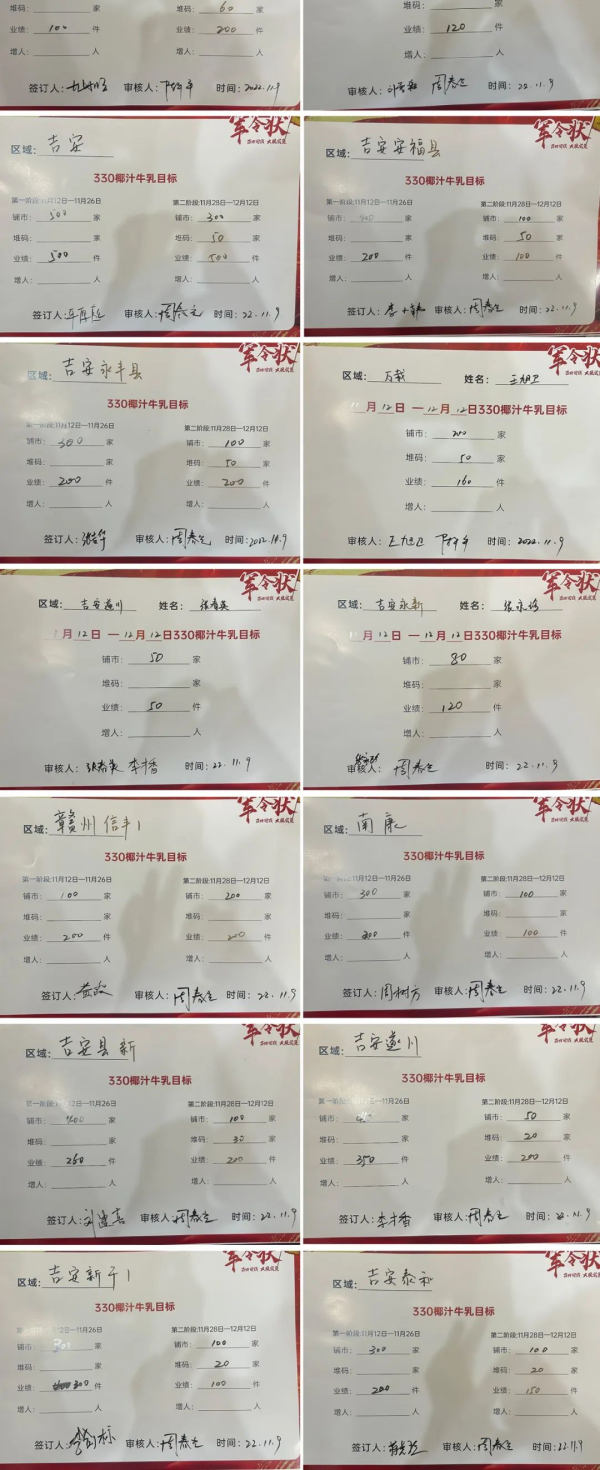 堆码: 家 堆码: 60 家
业绩: 100 件 业绩: 200 件
增人: 人 增人: 人
签订人: 审核人: 时间: 2022.11.9
堆码: 家
业绩: 120 件
增人: 人
审核人: 周春生 时间: 22.11.9
军令状
区域: 吉安
330椰汁牛乳目标
第一阶段:11月12日—11月26日 第二阶段:11月28日—12月12日
铺市: 300 家 铺市: 300 家
堆码: 家 堆码: 50 家
业绩: 500 件 业绩: 500 件
增人: 人 增人: 人
签订人: 审核人: 周春生 时间: 22.11.9
军令状
区域: 吉安安福县
330椰汁牛乳目标
第一阶段:11月12日—11月26日 第二阶段:11月28日—12月12日
铺市: 家 铺市: 100 家
堆码: 家 堆码: 50 家
业绩: 200 件 业绩: 100 件
增人: 人 增人: 人
签订人: 审核人: 周春生 时间: 22.11.9
军令状
区域: 吉安永丰县
330椰汁牛乳目标
第一阶段:11月12日—11月26日 第二阶段:11月28日—12月12日
铺市: 300 家 铺市: 100 家
堆码: 家 堆码: 50 家
业绩: 200 件 业绩: 200 件
增人: 人 增人: 人
签订人: 审核人: 周春生 时间: 2022.11.9
军令状
区域: 万载 姓名: 王旭卫
11月12日 — 12月12日330椰汁牛乳目标
铺市: 200 家
堆码: 50 家
业绩: 160 件
增人: 人
审核人: 王旭卫 时间: 2022.11.9
军令状
区域: 吉安遂川 姓名: 张春英
月12日 — 12月12日330椰汁牛乳目标
铺市: 50 家
堆码: 家
业绩: 50 件
增人: 人
审核人: 张春英 李才香 时间: 22.11.9
军令状
区域: 吉安永新 姓名:
月12日 — 12月12日330椰汁牛乳目标
铺市: 80 家
堆码: 家
业绩: 120 件
增人: 人
审核人: 周春生 时间: 22.11.9
军令状
区域: 赣州信丰1
330椰汁牛乳目标
第一阶段:11月12日—11月26日 第二阶段:11月28日—12月12日
铺市: 100 家 铺市: 200 家
堆码: 家 堆码: 家
业绩: 200 件 业绩: 200 件
增人: 人 增人: 人
签订人: 审核人: 周春生 时间: 22.11.9
军令状
区域: 南康
330椰汁牛乳目标
第一阶段:11月12日—11月26日 第二阶段:11月28日—12月12日
铺市: 300 家 铺市: 100 家
堆码: 家 堆码: 家
业绩: 200 件 业绩: 100 件
增人: 人 增人: 人
签订人: 周树方 审核人: 周春生 时间: 22.11.9
军令状
区域: 吉安县新
330椰汁牛乳目标
第一阶段:11月12日—11月26日 第二阶段:11月28日—12月12日
铺市: 家 铺市: 100 家
堆码: 家 堆码: 30 家
业绩: 260 件 业绩: 200 件
增人: 人 增人: 人
签订人: 审核人: 周春生 时间: 22.11.9
军令状
区域: 吉安遂川
330椰汁牛乳目标
第一阶段:11月12日—11月26日 第二阶段:11月28日—12月12日
铺市: 家 铺市: 50 家
堆码: 家 堆码: 20 家
业绩: 350 件 业绩: 200 件
增人: 人 增人: 人
签订人: 李才香 审核人: 周春生 时间: 22.11.9
军令状
区域: 吉安新干1
330椰汁牛乳目标
12日—11月26日 第二阶段:11月28日—12月12日
铺市: 300 家 铺市: 100 家
堆码: 家 堆码: 20 家
业绩: 300 件 业绩: 100 件
增人: 人 增人: 人
签订人: 审核人: 周春生 时间: 22.11.9
军令状
区域: 吉安泰和
330椰汁牛乳目标
第一阶段:11月12日—11月26日 第二阶段:11月28日—12月12日
铺市: 300 家 铺市: 100 家
堆码: 家 堆码: 20 家
业绩: 200 件 业绩: 150 件
增人: 人 增人: 人
签订人: 审核人: 周春生 时间: 22.11.9